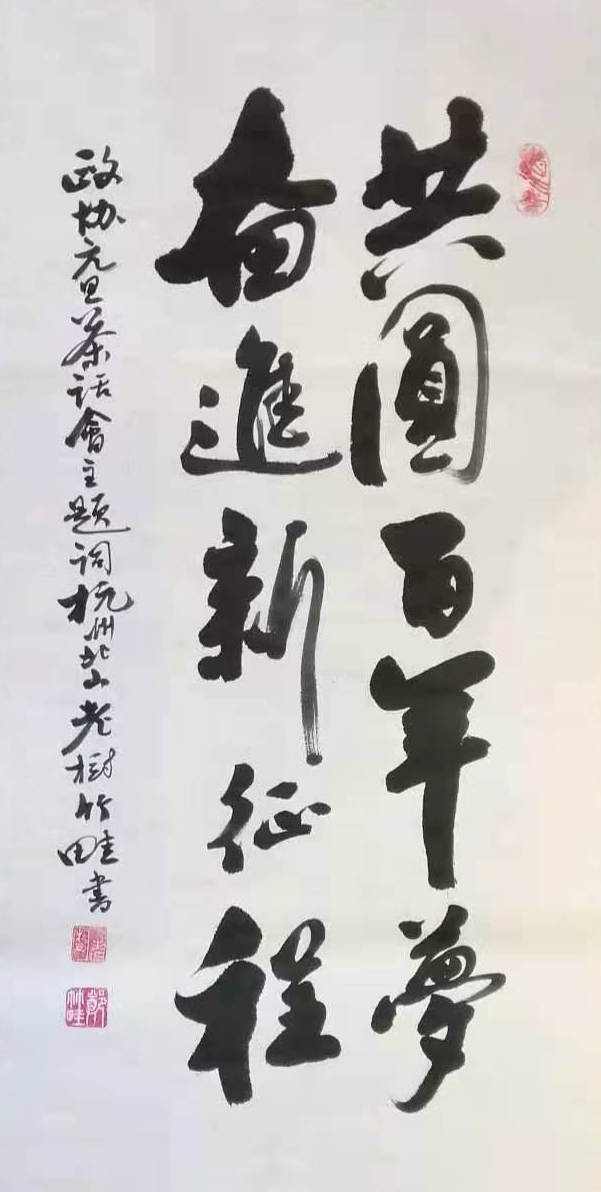 共圓百年夢
奋進新征程
政协元旦茶话會主题词杭州北山老樹竹畦書
鄭竹畦